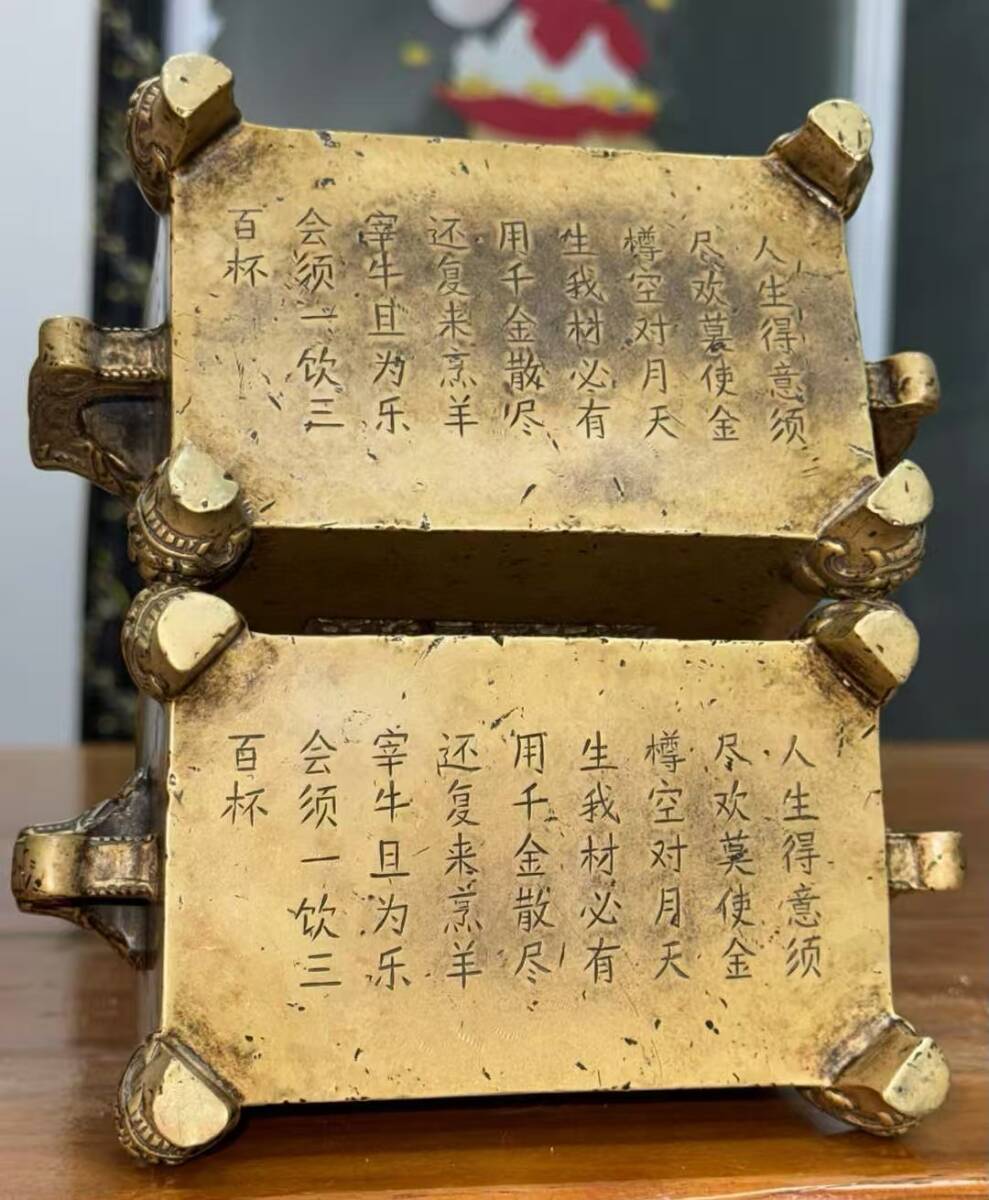 人生得意须
尽欢莫使金
樽空对月天
生我材必有
用千金散尽
还复来烹羊
宰牛且为乐
会须一饮三
百杯
人生得意须
尽欢莫使金
樽空对月天
生我材必有
用千金散尽
还复来烹羊
宰牛且为乐
会须一饮三
百杯